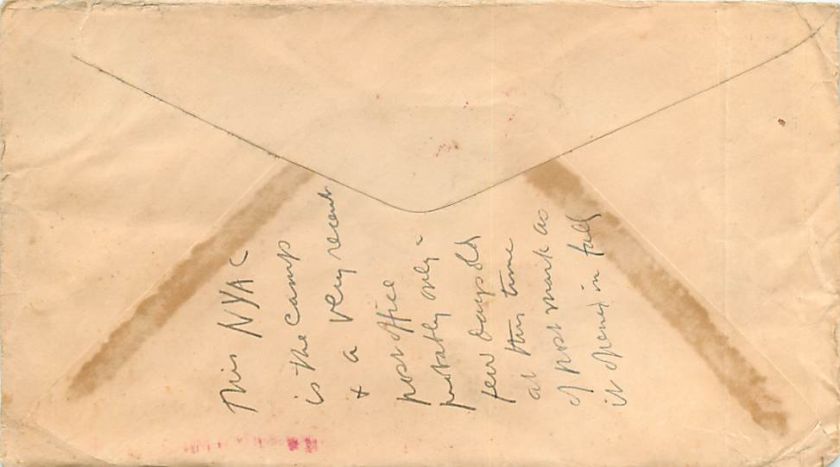 This NYAC
is the camp
+ a very recent
post office
probably only a
few days old
at this time
of post mark as
it opened in fall